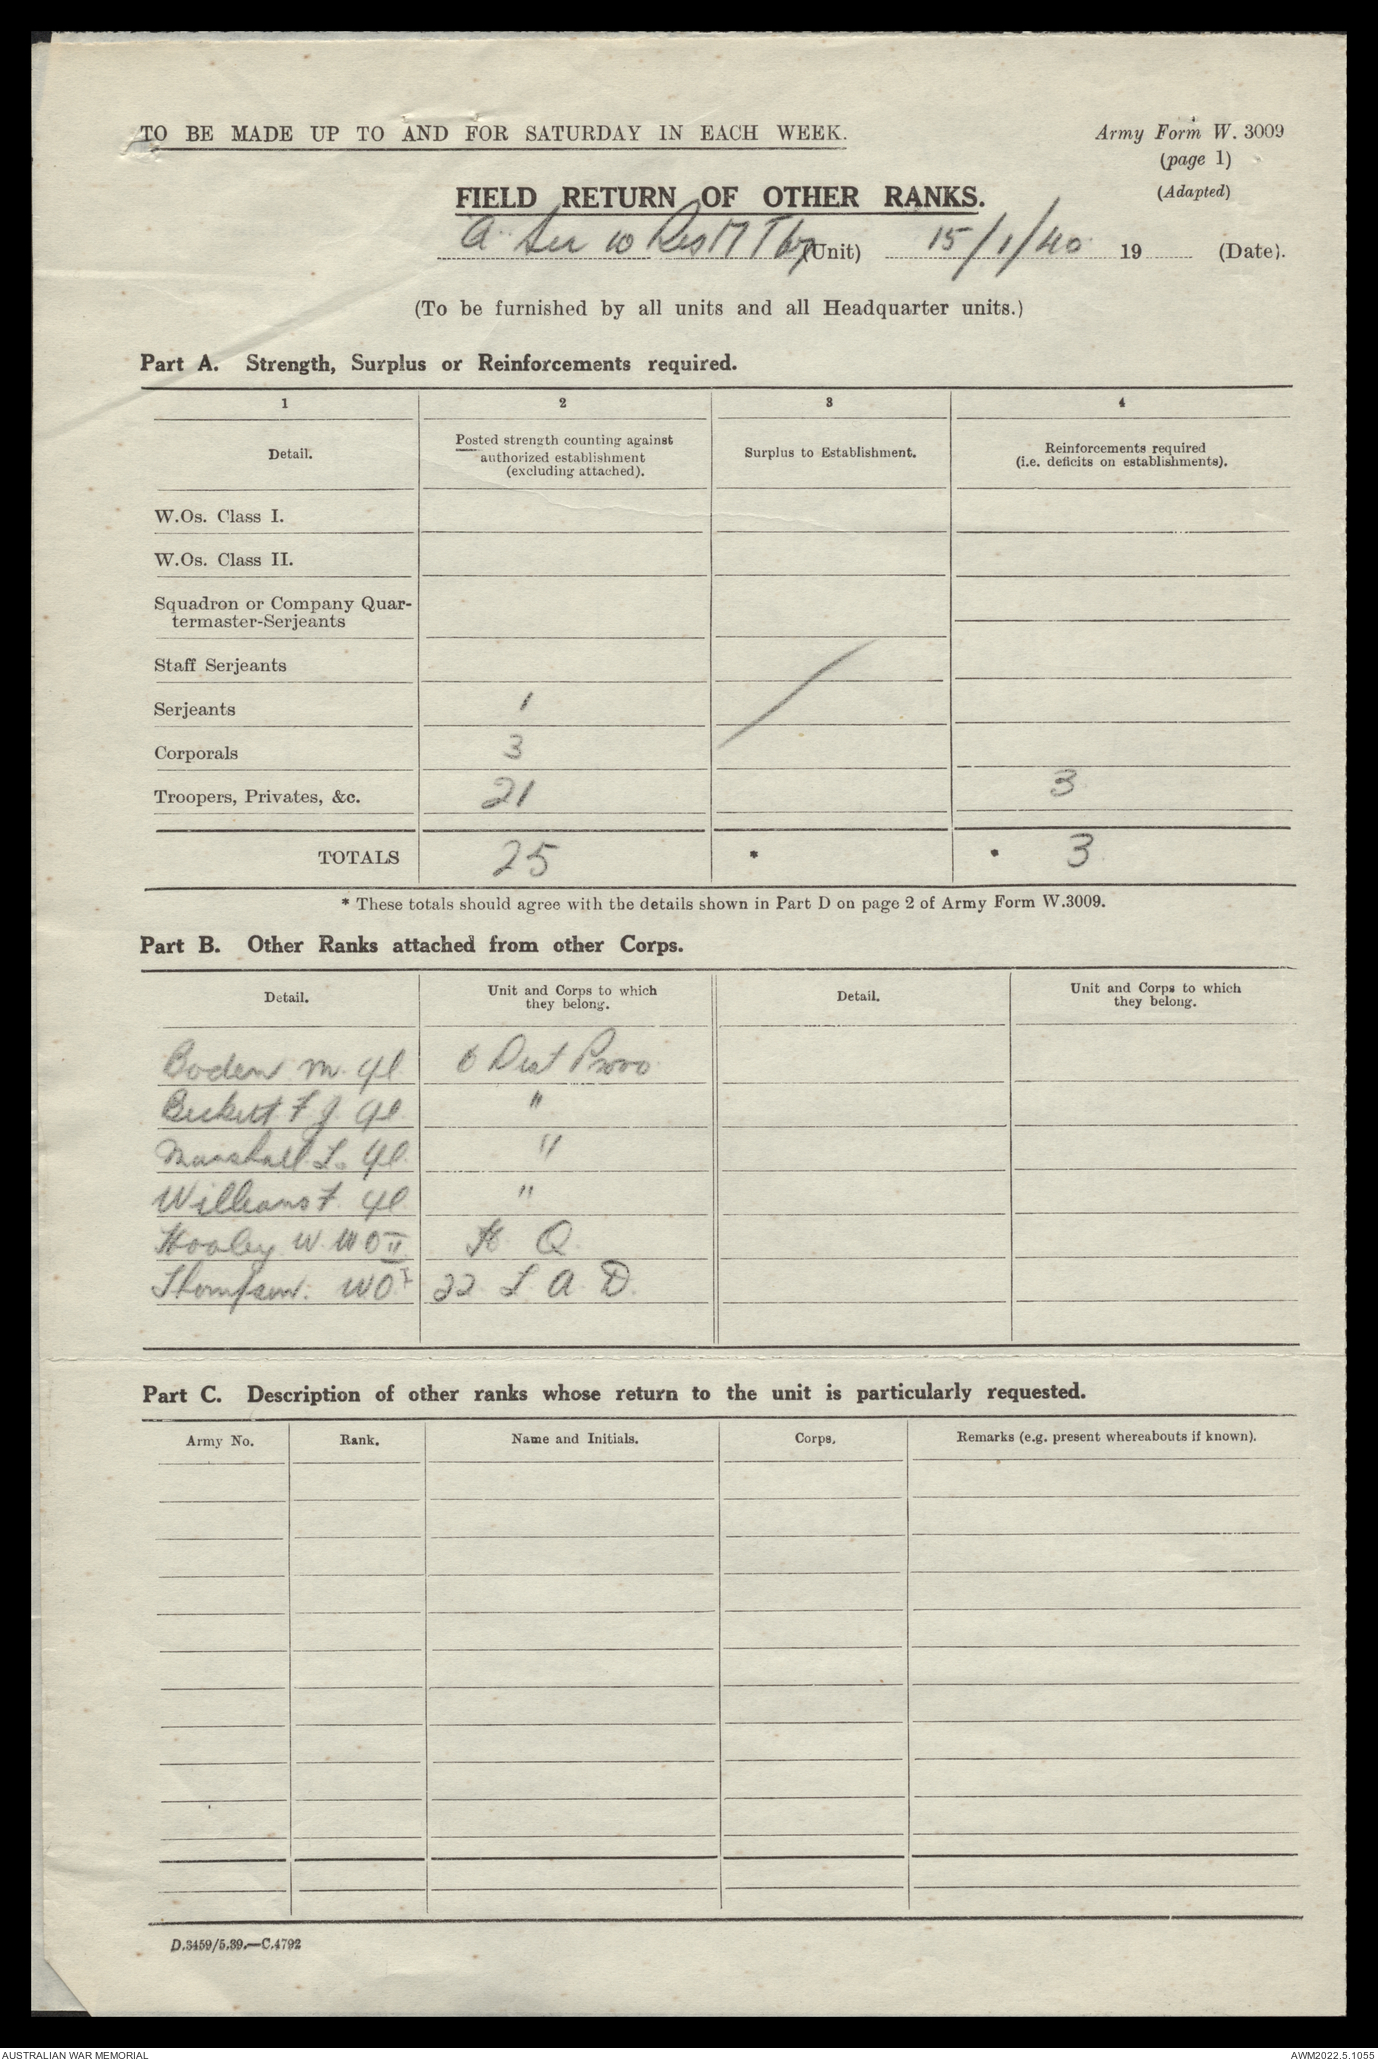 TO BE MADE UP TO AND FOR SATURDAY IN EACH WEEK.
Army Form W. 3009
(page 1)
(Adapted)
FIELD RETURN OF OTHER RANKS.
A 10 Res M T (Unit) 15/1/40 19 (Date).
(To be furnished by all units and all Headquarter units.)
Part A. Strength, Surplus or Reinforcements required.
1 2 3 4
Detail. Posted strength counting against authorized establishment (excluding attached). Surplus to Establishment. Reinforcements required (i.e. deficits on establishments).
W.Os. Class I.
W.Os. Class II.
Squadron or Company Quar-
termaster-Serjeants
Staff Serjeants
Serjeants 1
Corporals 3
Troopers, Privates, &c. 21 3
TOTALS 25 * * 3
* These totals should agree with the details shown in Part D on page 2 of Army Form W.3009.
Part B. Other Ranks attached from other Corps.
Detail. Unit and Corps to which they belong. Detail. Unit and Corps to which they belong.
Boden M. 6 Dist Provo
Beckett F J "
Marshall L. "
Williams F. "
Hooley W. WO II H Q
Thompson. WO I 22 L A D.
Part C. Description of other ranks whose return to the unit is particularly requested.
Army No. Rank. Name and Initials. Corps. Remarks (e.g. present whereabouts if known).
D.3459/5.39.—C.4792
AUSTRALIAN WAR MEMORIAL
AWM2022.5.1055